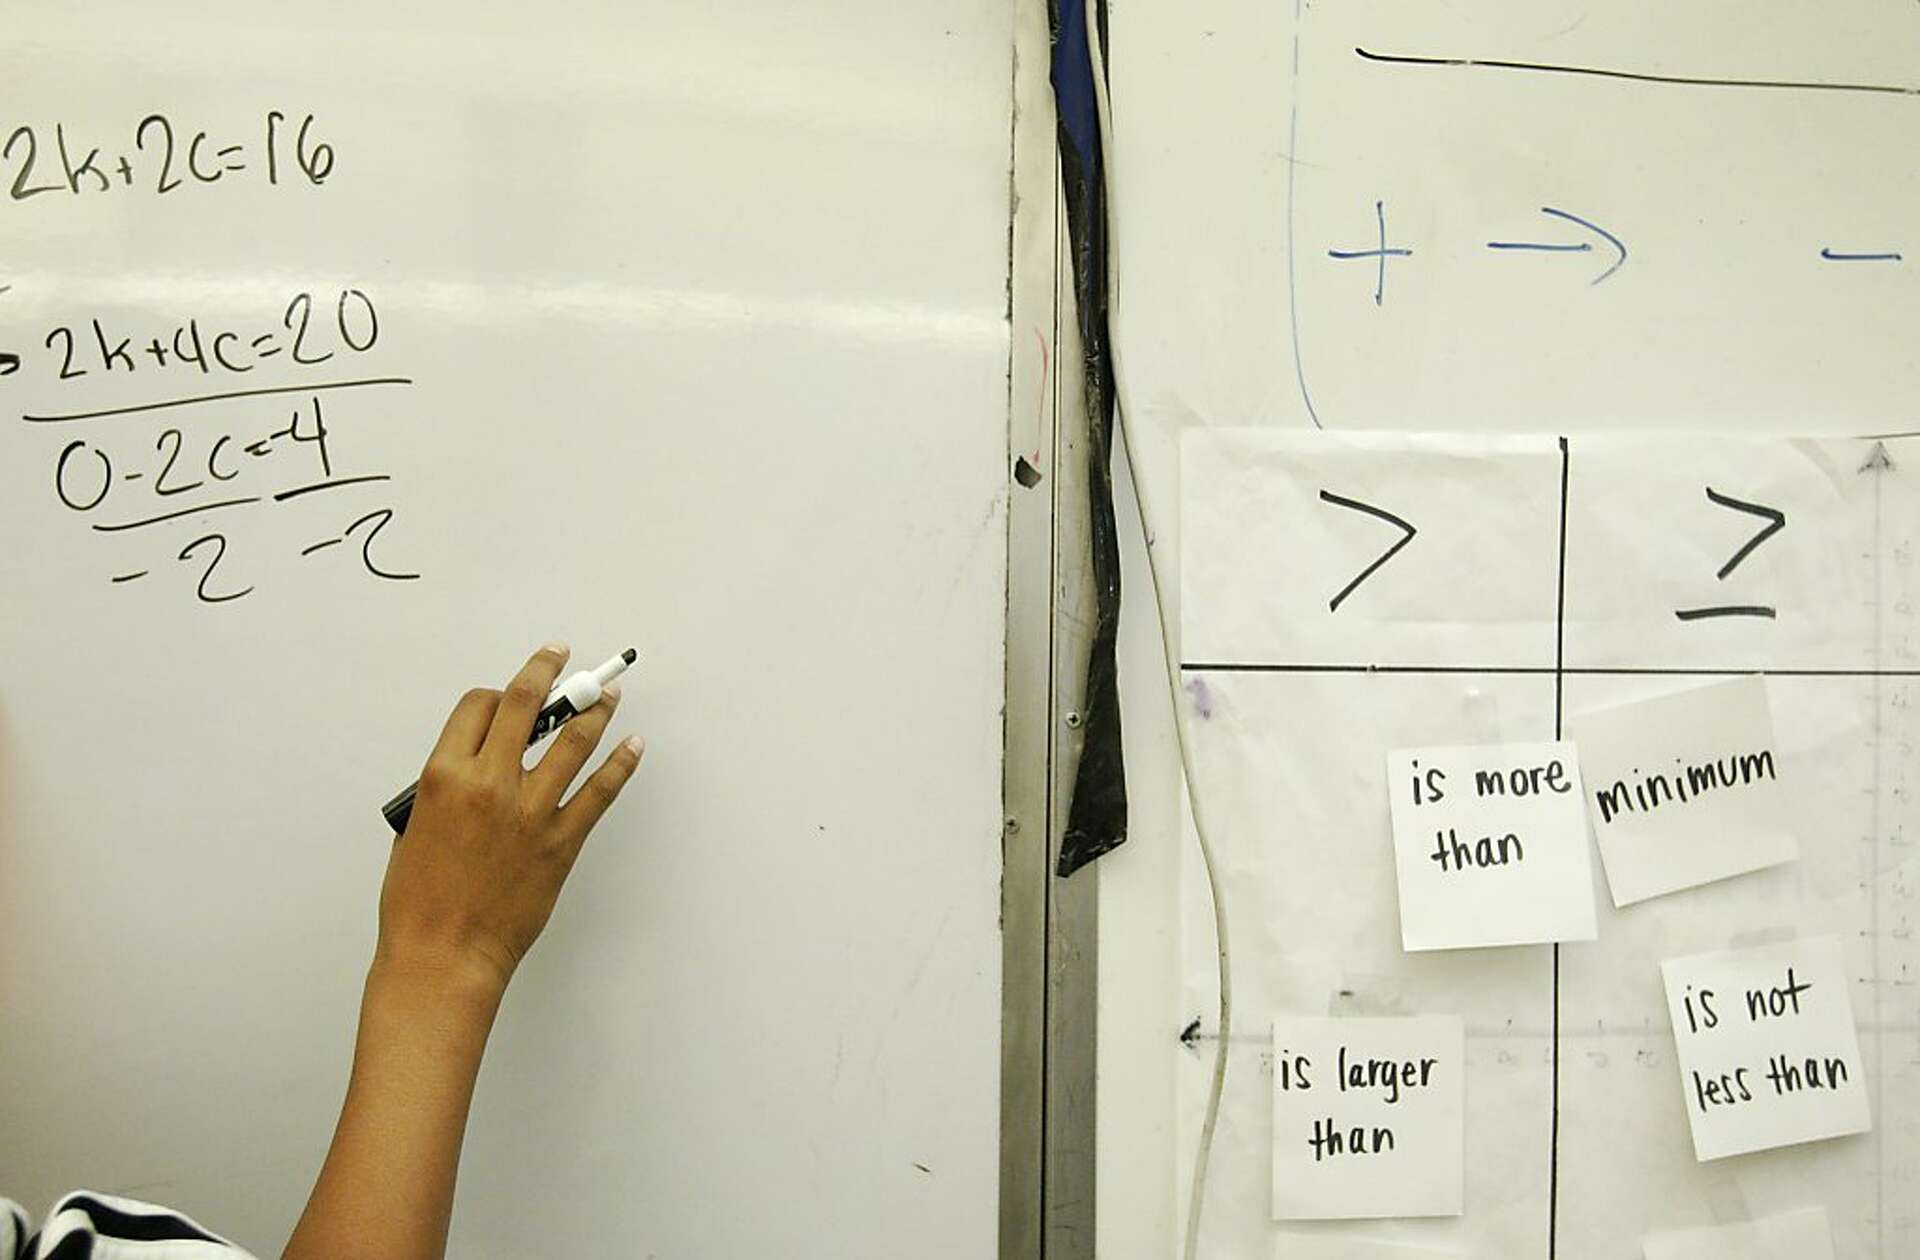 2k+2c=16
2k+4c=20
0-2c=-4
-2 -2
+ → -
> ≥
is more
than
minimum
is larger
than
is not
less than